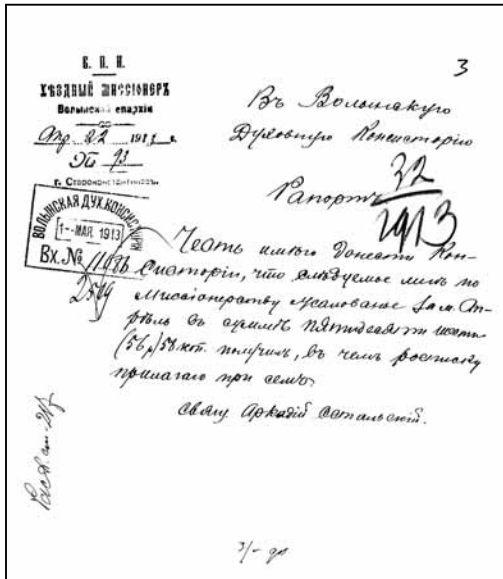 3
Е. П. И.
УѢЗДНЫЙ МИССІОНЕРЪ
Волынской епархіи
Апр. 22 1913 г.
№ 93
г. Староконстантиновъ
Въ Волынскую
Духовную Консисторію
Рапортъ
32
1913
ВОЛЫНСКАЯ ДУХ. КОНСИСТОРІЯ
1 - МАЯ 1913
Вх. №
Честь имѣю донести Кон-
систоріи, что слѣдуемое мнѣ по
Миссіонерству жалованье за м. Ап-
рѣль въ суммѣ пятидесяти шести
(56 р.) 58 коп. получилъ, въ чемъ росписку
прилагаю при семъ.
Свящ. Аркадій Остальскій.